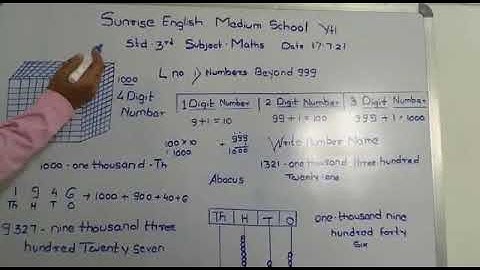 Sunrise English Medium School Ytl
Std. 3rd Subject-Maths Date 17.7.21
L no 1) Numbers Beyond 999
1000
4 Digit
Number
1 Digit Number
9+1=10
2 Digit Number
99+1=100
3 Digit Number
999+1=1000
100×10
=1000
999
+ 1
1000
Write number Name
1321-one thousand three hundred
Twenty-one
1000-one thousand-Th
Abacus
1 9 4 6 → 1000 + 900 + 40 + 6
Th H T O
Th H T O
one thousand nine
hundred forty
six
9327-nine thousand three
hundred Twenty seven